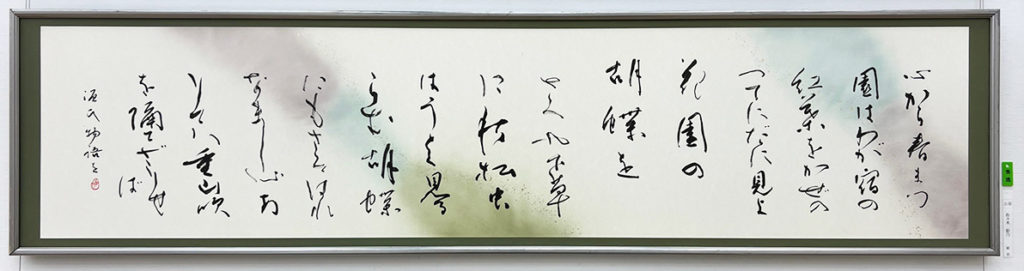 心から春まつ
園はわが宿の
紅葉をかぜの
つてにだに見よ
花園の
胡蝶を
さへや下草
に秋松虫
はうとく見る
らむ胡蝶
にもさそはれ
なまし心あ
りて八重山吹
を隔てざりせ
ば
源氏物語より